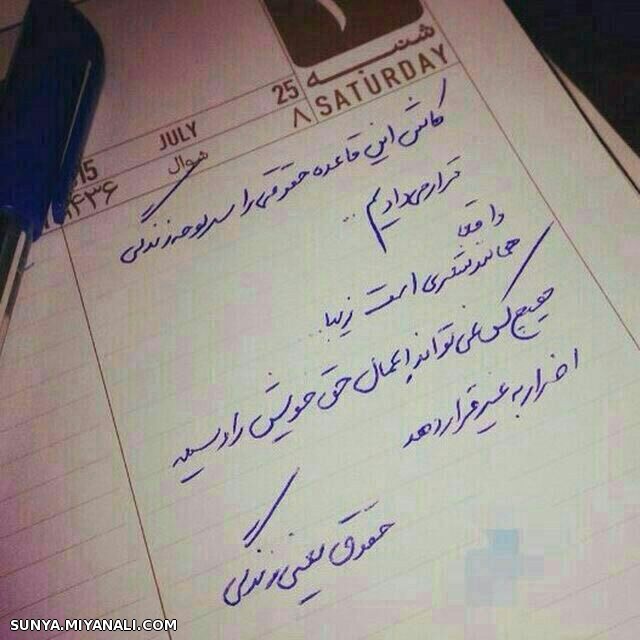 شنبه
SATURDAY
25 JULY
۸ شوال
۱۴۳۶
کاش این قاعده حقوقی را سرلوحه زندگی
قرار می دادیم ...
واقعا
همانند شعری است زیبا...
هیچ کس نمی تواند اعمال حق خویش را وسیله
اضرار به غیر قرار دهد
حقوق یعنی زندگی
SUNYA.MIYANALI.COM